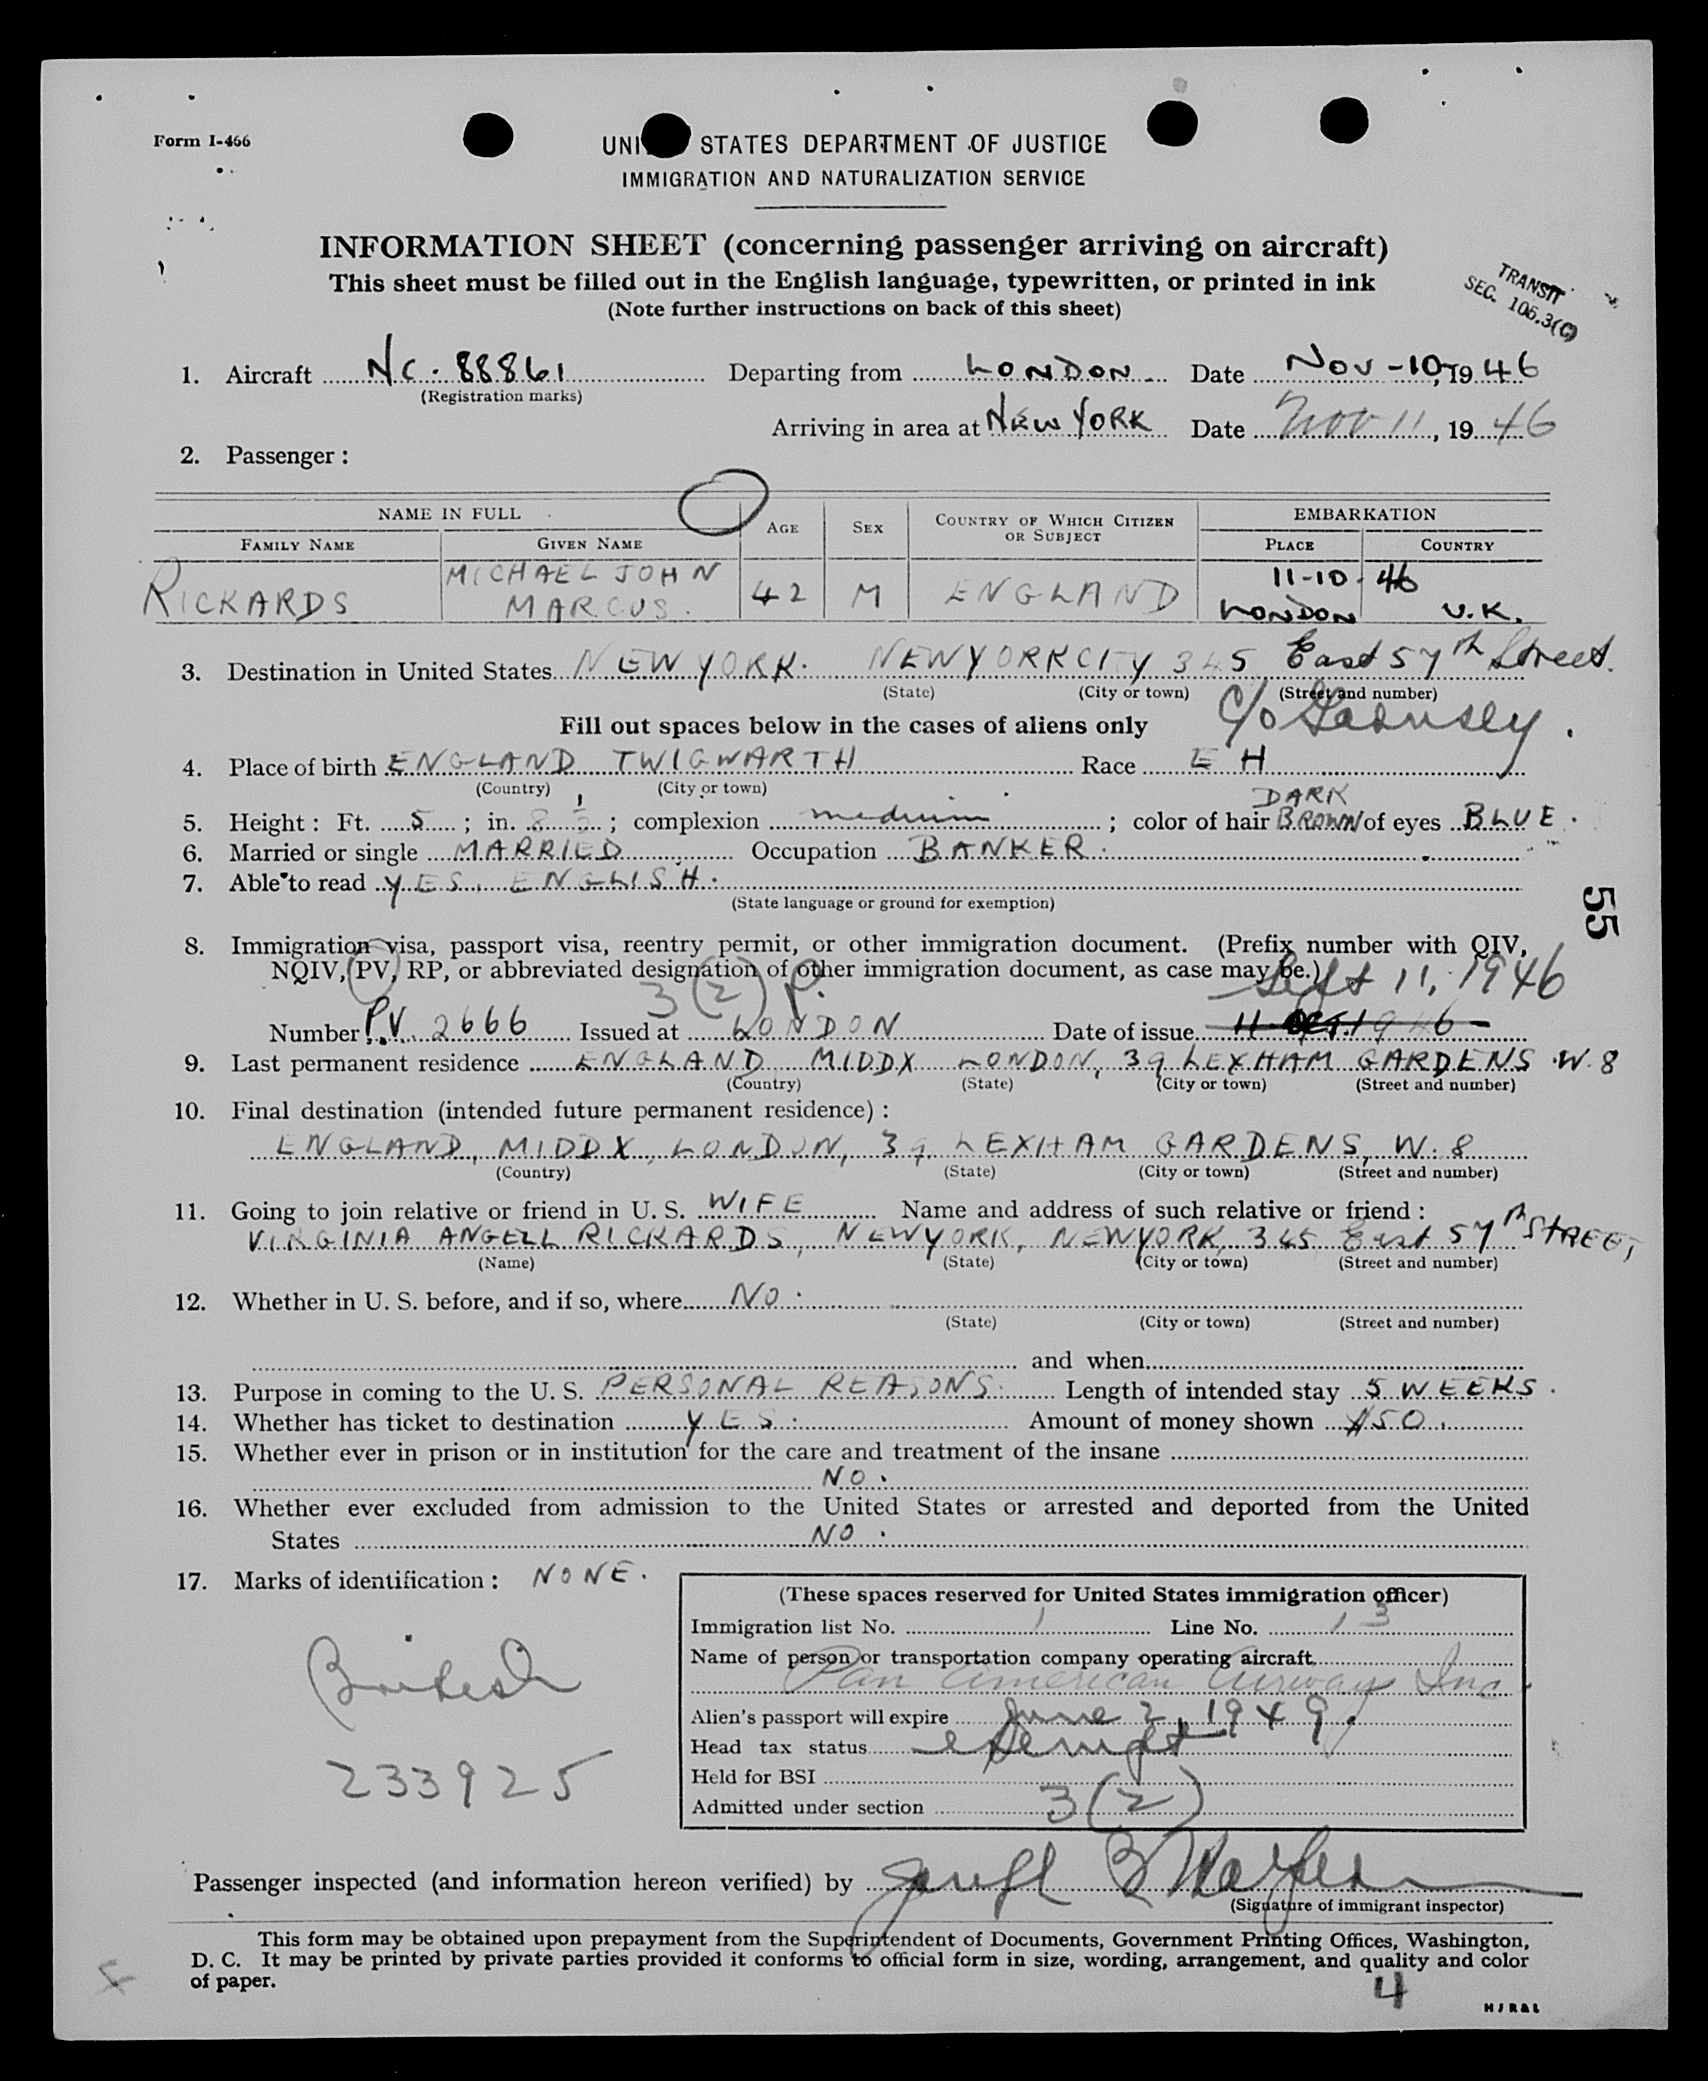 Form I-466
UNI STATES DEPARTMENT OF JUSTICE
IMMIGRATION AND NATURALIZATION SERVICE
INFORMATION SHEET (concerning passenger arriving on aircraft)
This sheet must be filled out in the English language, typewritten, or printed in ink
(Note further instructions on back of this sheet)
TRANSIT
SEC. 106.3(C)
1. Aircraft NC. 88861 Departing from LONDON Date NOV-10, 1946
(Registration marks)
Arriving in area at NEW YORK Date Nov 11, 1946
2. Passenger:
NAME IN FULL AGE SEX COUNTRY OF WHICH CITIZEN OR SUBJECT EMBARKATION
FAMILY NAME GIVEN NAME PLACE COUNTRY
MICHAEL JOHN 11-10-46
RICKARDS MARCUS. 42 M ENGLAND LONDON U.K.
3. Destination in United States NEW YORK. NEW YORK CITY 345 East 57th Street.
(State) (City or town) (Street and number)
Fill out spaces below in the cases of aliens only c/o
4. Place of birth ENGLAND TWIGWARTH Race E H
(Country) (City or town)
DARK
5. Height: Ft. 5; in. 8; complexion medium; color of hair BROWN of eyes BLUE.
6. Married or single MARRIED Occupation BANKER.
7. Able to read YES. ENGLISH.
(State language or ground for exemption)
55
8. Immigration visa, passport visa, reentry permit, or other immigration document. (Prefix number with QIV,
NQIV, PV, RP, or abbreviated designation of other immigration document, as case may be.)
3(2) P. Sept 11, 1946
Number P.V. 2666 Issued at LONDON Date of issue 11-OCT. 1946-
9. Last permanent residence ENGLAND MIDDX LONDON, 39 LEXHAM GARDENS W.8
(Country) (State) (City or town) (Street and number)
10. Final destination (intended future permanent residence):
ENGLAND, MIDDX, LONDON, 39, LEXHAM GARDENS, W.8
(Country) (State) (City or town) (Street and number)
11. Going to join relative or friend in U. S. WIFE Name and address of such relative or friend:
VIRGINIA ANGELL RICKARDS, NEW YORK, NEW YORK, 345 East 57th STREET,
(Name) (State) (City or town) (Street and number)
12. Whether in U. S. before, and if so, where NO.
(State) (City or town) (Street and number)
and when
13. Purpose in coming to the U. S. PERSONAL REASONS. Length of intended stay 5 WEEKS.
14. Whether has ticket to destination YES. Amount of money shown $50.
15. Whether ever in prison or in institution for the care and treatment of the insane
NO.
16. Whether ever excluded from admission to the United States or arrested and deported from the United
States NO.
17. Marks of identification: NONE.
(These spaces reserved for United States immigration officer)
Immigration list No. 1 Line No. 13
Name of person or transportation company operating aircraft
Pan American Airway Inc
Alien's passport will expire June 2, 1949.
Head tax status exempt
Held for BSI
Admitted under section 3(2)
British
233925
Passenger inspected (and information hereon verified) by
(Signature of immigrant inspector)
This form may be obtained upon prepayment from the Superintendent of Documents, Government Printing Offices, Washington,
D. C. It may be printed by private parties provided it conforms to official form in size, wording, arrangement, and quality and color
of paper.
4